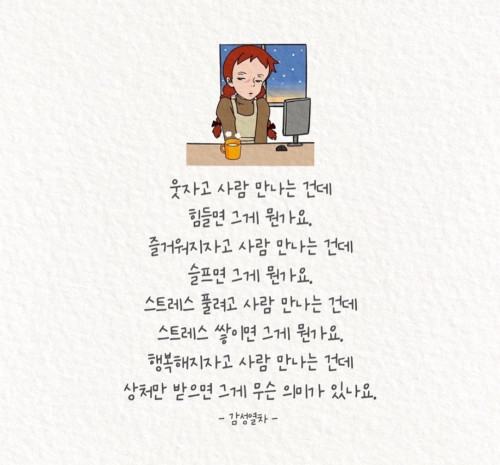 웃자고 사람 만나는 건데
힘들면 그게 뭔가요.
즐거워지자고 사람 만나는 건데
슬프면 그게 뭔가요.
스트레스 풀려고 사람 만나는 건데
스트레스 쌓이면 그게 뭔가요.
행복해지자고 사람 만나는 건데
상처만 받으면 그게 무슨 의미가 있나요.
- 감성열차 -